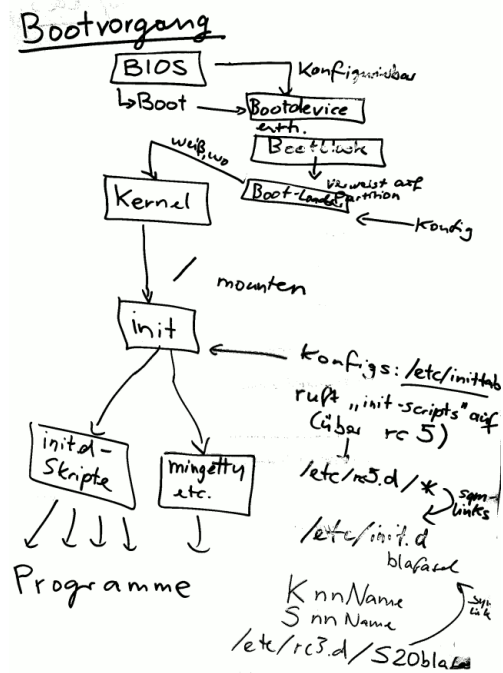 Bootvorgang
BIOS
Konfigurierbar
↳Boot
Bootdevice
enth.
Bootblock
weiß, wo
verweist auf
Partition
Boot-Loader
Kernel
Konfig
/ mounten
init
Konfigs: /etc/inittab
ruft „init-scripts" auf
(über rc 5)
init.d-
Skripte
mingetty
etc.
/etc/rc5.d/*
sym-
links
/etc/init.d
blafasel
Programme
K nnName
S nnName
sym
link
/etc/rc3.d/S20bla